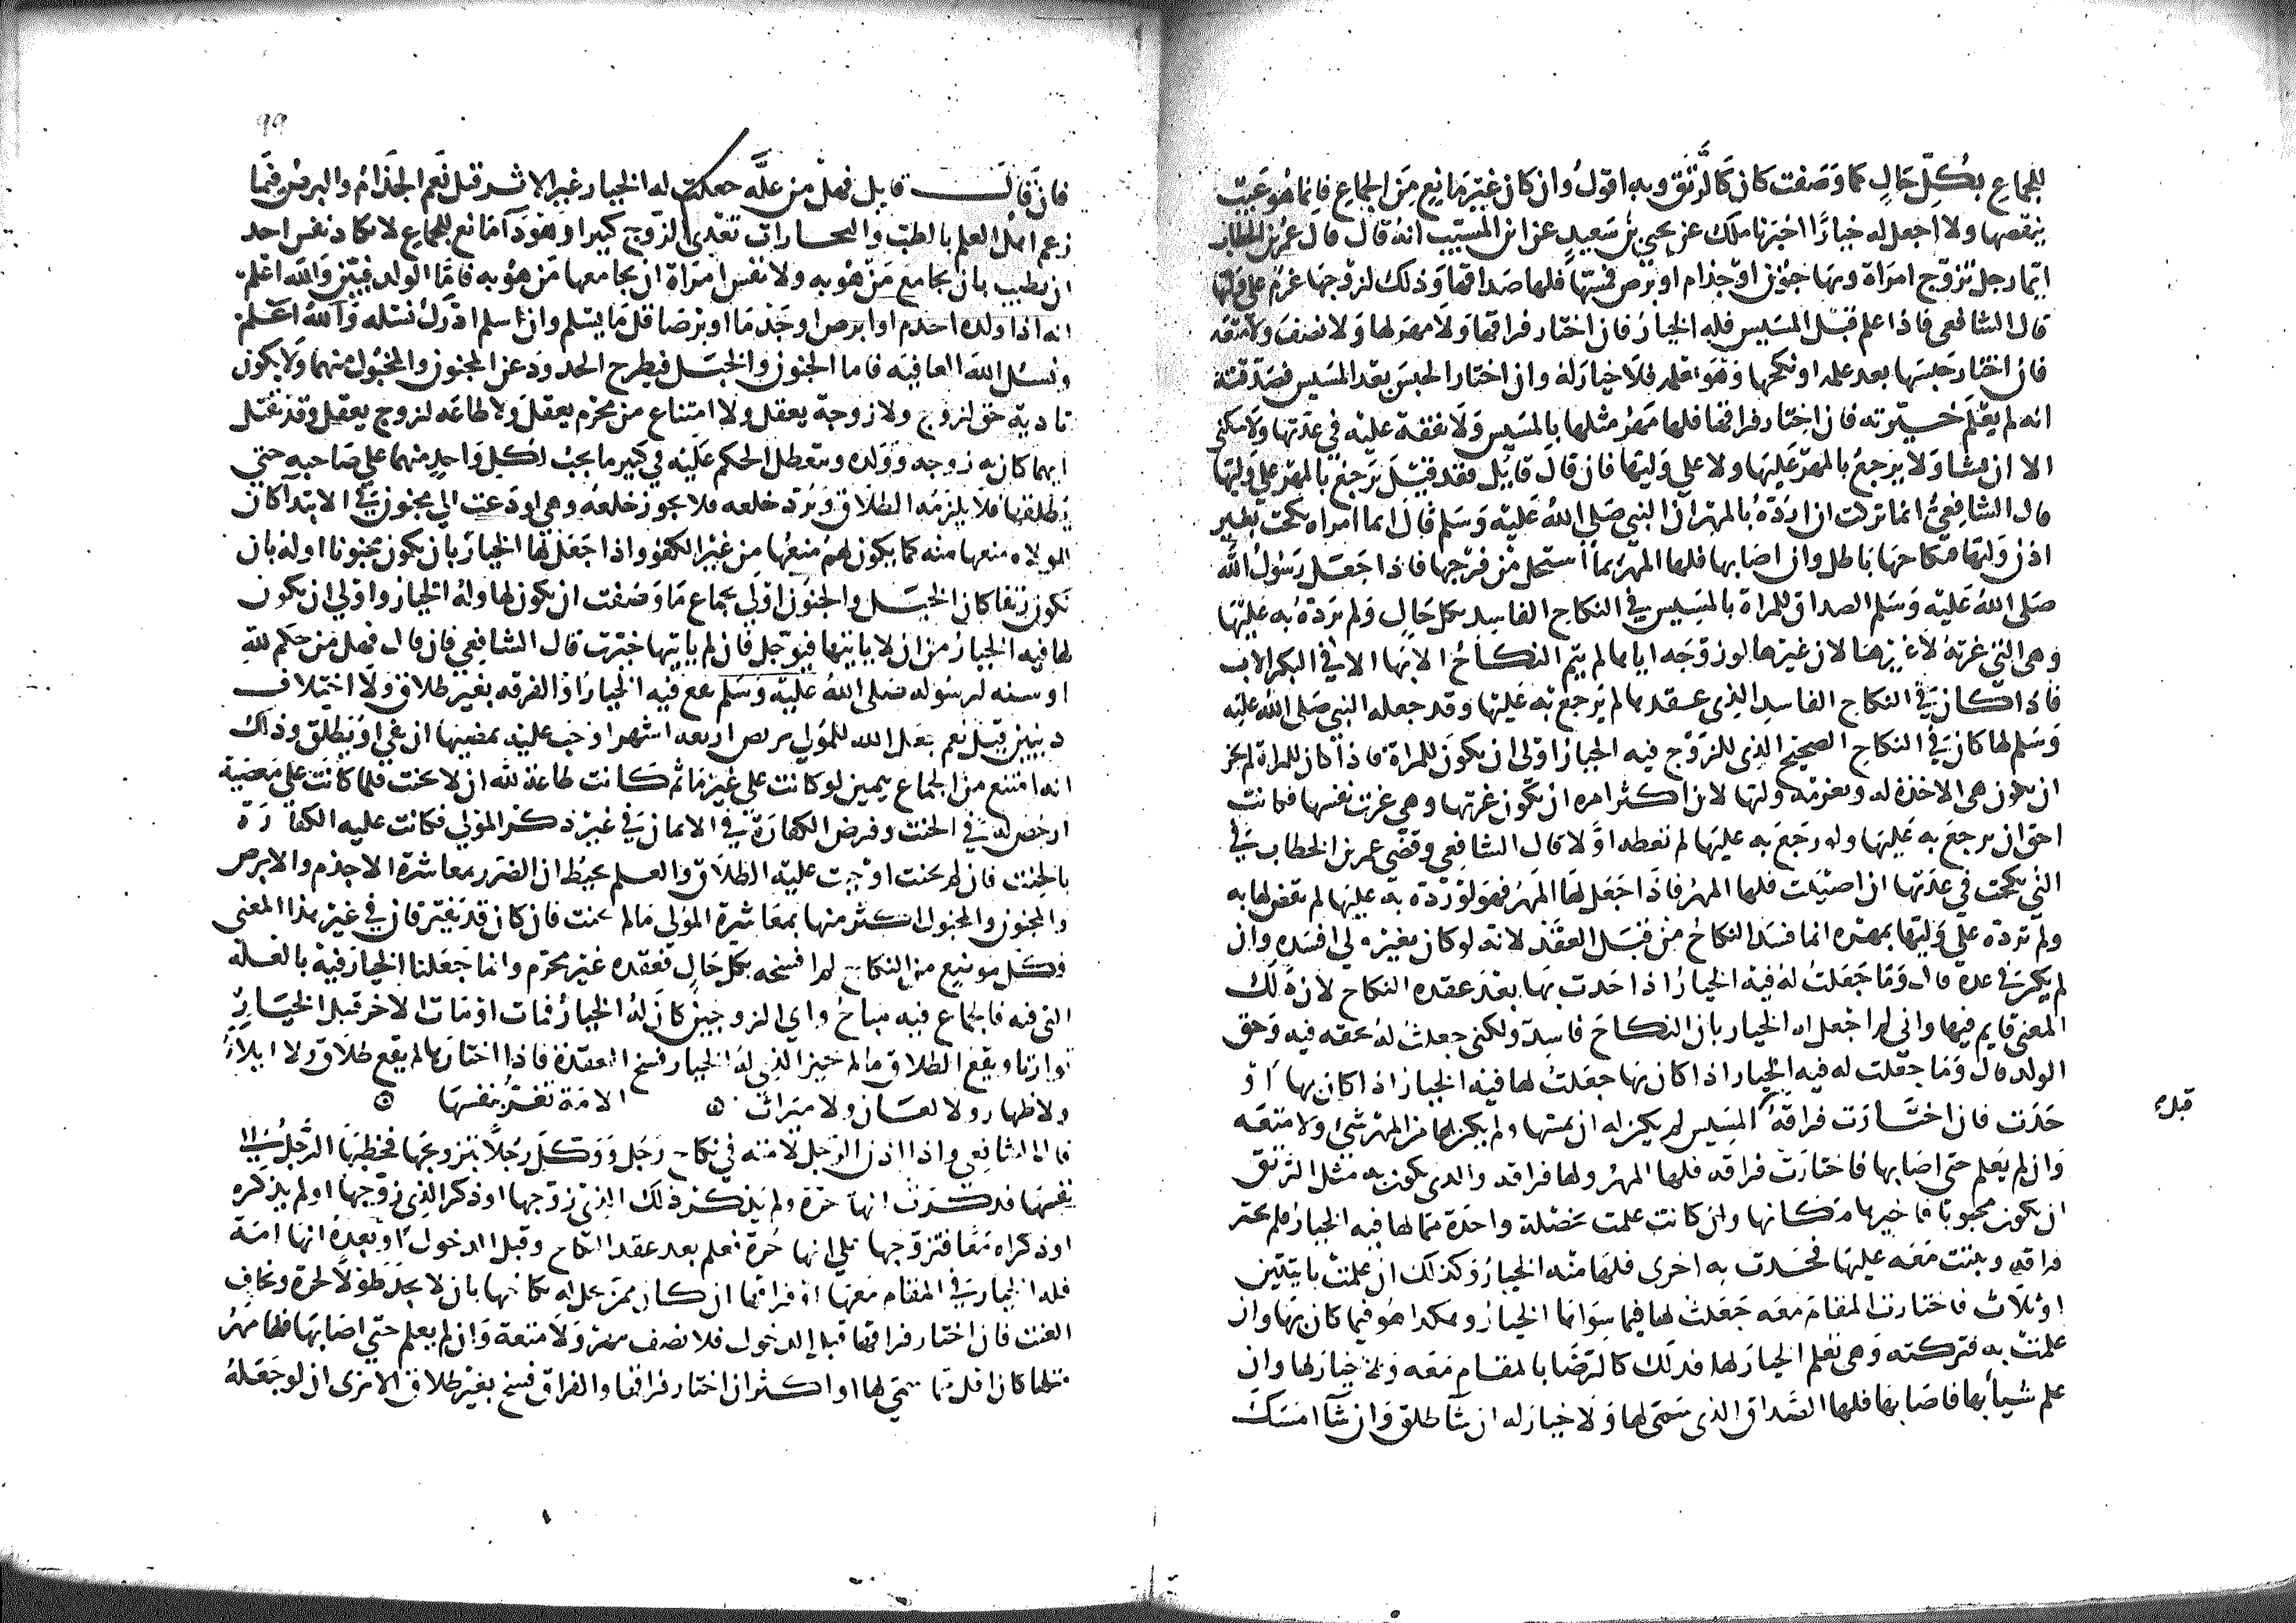 للجماع بكل حال كما وصفت كان كالرتق وبه اقول وان كان غير مانع من الجماع فانما هو عيب
ينقصها ولا اجعل له خيارا اخبرنا ملك عن يحيى بن سعيد عن ابن المسيب انه قال قال عمر بن الخطاب
ايما رجل تزوج امراة وبها جنون او جذام او برص فمسها فلها صداقها وذلك لزوجها غرم على وليها
قال الشافعي فاذا علم قبل المسيس فله الخيار فان اختار فراقها ولا مهر لها ولا نصف ولا متعه
فان اختار حبسها بعد علمه او نكحها وهو يعلم فلا خيار له وان اختار الحبس بعد المسيس فصدقته
انه لم يعلم خيرته فان اختار فراقها فلها مهر مثلها بالمسيس ولا نفقة عليه في عدتها ولا سكنى
الا ان يشا ولا يرجع بالمهر عليها ولا على وليها فان قال قايل فقد قيل يرجع بالمهر على وليها
قال الشافعي انما تركت ان ارده بالمهر ان النبي صلى الله عليه وسلم قال ايما امراه نكحت بغير
اذن وليها فنكاحها باطل وان اصابها فلها المهر بما استحل من فرجها فاذا جعل رسول الله
صلى الله عليه وسلم الصداق للمراة بالمسيس في النكاح الفاسد بكل حال ولم يرده به عليها
وهي التي غرته لا غيرها لان غيرها لو زوجه اياها لم يتم النكاح الا بها الا في البكر الاب
فاذا كان في النكاح الفاسد الذي عقد لها لم يرجع به عليها وقد جعله النبي صلى الله عليه
وسلم لها كان في النكاح الصحيح الذي للزوج فيه الخيار اولى ان يكون للمراة فاذا كان للمراة لم يجز
ان تكون هي الاخذة له ويغرمه وليها لان اكثر امره ان يكون غرتها وهي غرت نفسها فكانت
احق ان يرجع به عليها ولو رجع به عليها لم تعطه اولا قال الشافعي وقضى عمر بن الخطاب في
التي نكحت في عدتها ان اصيبت فلها المهر فاذا جعل لها المهر فهو لو رده به عليها لم يقض لها به
ولم ترده على وليها بمهره انما فسد النكاح من قبل العقد لانه لو كان بغير ولي افسده وان
لم يكن في عدة قال وما جعلت له فيه الخيار اذا حدث بها بعد عقده النكاح لان ذلك
المعنى قايم فيها واني لم اجعل له الخيار بان النكاح فاسد ولكني جعلت له بحقه فيه وحق
الولد قال وما جعلت له فيه الخيار اذا كان بها جعلت لها فيه الخيار اذا كان بها او
حدث فان اختارت فراقه قبل المسيس لم يكن له ان يمسها ولم يكن لها من المهر شئ ولا متعه
وان لم يعلم حتى اصابها فاختارت فراقه فلها المهر ولها فراقه والذي يكون به مثل الرتق
ان يكون مجبوبا فاخيرها مكانها وان كانت علمت بخصلة واحدة مما لها فيه الخيار فلم تختر
فراقه وثبتت معه عليها فحدث به اخرى فلها منه الخيار وكذلك ان علمت باثنتين
او ثلاث فاختارت المقام معه جعلت لها فيما سواها الخيار وهكذا هو فيما كان بها وان
علمت به فتركته وهي تعلم الخيار لها فذلك كالرضا بالمقام معه ولا خيار لها وان
علم شيأ بها فاصابها فلها الصداق الذي سمى لها ولا خيار له ان شا طلق وان شا امسك
٩٩
فان قال قايل فهل من علة جعلت له الخيار غير الاثر قيل نعم الجذام والبرص فيما
زعم اهل العلم بالطب والتجارات تعدي الزوج كثيرا وهو دا مانع للجماع لا تكاد نفس احد
ان تطيب بان يجامع من هو به ولا نفس امراة ان يجامعها من هو به فاما الولد فبين والله اعلم
انه اذا ولده اجذم او ابرص او جذما او برصا قل ما يسلم وان سلم ادرك نسله والله اعلم
ونسئل الله العافيه فاما الجنون والخبل فيطرح الحدود عن المجنون والمخبول منهما ولا يكون
تادية حق لزوج ولا زوجة بعقل ولا امتناع من محرم بعقل ولا طاعه لزوج بعقل وقد يقتل
ايهما كان به زوجه وولده ويتعطل الحكم عليه في كثير ما يجب لكل واحد منهما على صاحبه حتى
يطلقها فلا يلزمه الطلاق ويرد خلعه فلا يجوز خلعه وهي لو دعت الى مجنون في الابتدا كان
للولاه منعها منه كما يكون لهم منعها من غير الكفو واذا جعل لها الخيار بان يكون مجنونا او له بان
تكون رتقا كان الخبل والجنون اولى بجماع ما وصفت ان يكون لها وله الخيار واولى ان يكون
لها فيه الخيار من ان لا ياتيها فيوجل فان لم ياتها خيرت قال الشافعي فان قال فهل من حكم لله
او سنه لرسوله صلى الله عليه وسلم يقع فيه الخيار او الفرقه بغير طلاق ولا اختلاف
دينين قيل نعم جعل الله للمولي تربص اربعه اشهر اوجب عليه بمضيها ان يفي او يطلق وذلك
انه امتنع من الجماع بيمين لو كانت على غير ماثم كانت طاعة لله ان لا يحنث فلما كانت على معصية
ارخص له في الحنث وفرض الكفارة في الايمان في غير ذكر المولي فكانت عليه الكفارة
بالحنث فان لم يحنث اوجبت عليه الطلاق والعلم يحيط ان الضرر بمعاشرة الاجذم والابرص
والمجنون والمخبول اكثر منها بمعاشرة المولي مالم يحنث فان كان قد يفترقان في غير هذا المعنى
وكل موضع من النكاح لم افسخه بكل حال فعقده غير محرم وانما جعلنا الخيار فيه بالعله
التي فيه فالجماع فيه مباح واي الزوجين كان له الخيار فمات او مات الاخر قبل الخيار
توارثا ويقع الطلاق مالم يختر الذي له الخيار فسخ العقدة فاذا اختارها لم يقع طلاق ولا ايلاء
ولا ظهار ولا لعان ولا ميراث ۞ الامة تغر بنفسها ۞
قال الشافعي واذا اذن الرجل لامته في نكاح رجل ووكل رجلا بتزويجها فخطبها الرجل الى
نفسها فذكرت انها حرة ولم يذكر ذلك الذي زوجها او ذكر الذي زوجها ولم تذكره
او ذكراه معا فتزوجها على انها حرة فعلم بعد عقد النكاح وقبل الدخول او بعده انها امة
فله الخيار في المقام معها او فراقها ان كان ممن يحل له نكاحها بان لا يجد طولا لحرة ويخاف
العنت فان اختار فراقها قبل الدخول فلا نصف مهر ولا متعة وان لم يعلم حتى اصابها فلها مهر
مثلها كان اقل مما سمى لها او اكثر ان اختار فراقها والفراق فسخ بغير طلاق الا ترى ان لو جعله